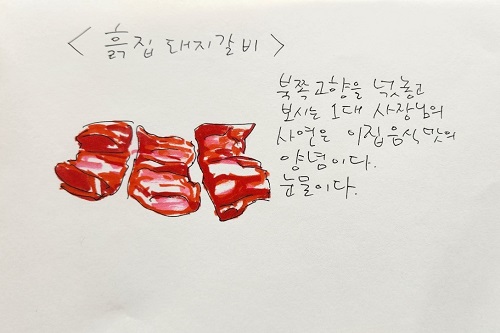 < 흙집 돼지갈비 >
북쪽고향을 넋놓고
보시는 1대 사장님의
사연은 이집음식맛의
양념이다.
눈물이다.